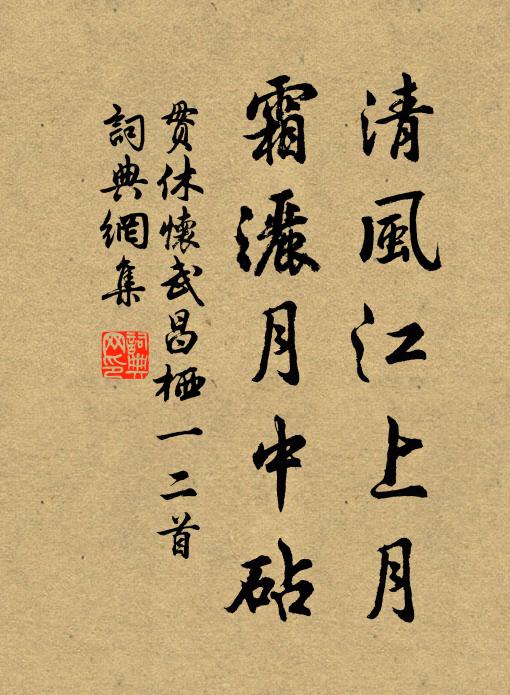 清風江上月
霜灑月中砧
貫休懷武昌栖一二首
詞典網集
詞典網印